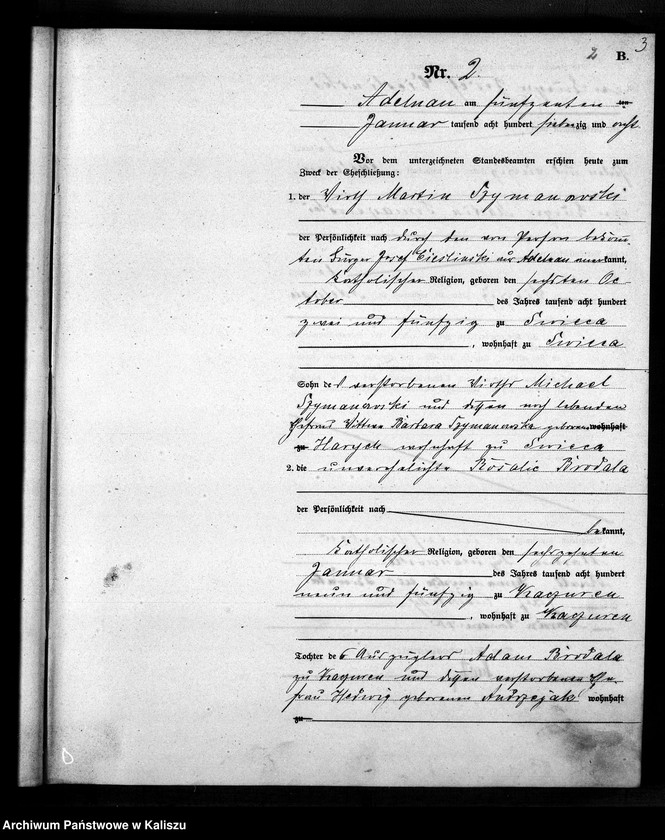 3
2 B.
Nr. 2.
Adelnau am fünfzehnten ten
Januar tausend acht hundert siebenzig und acht
Vor dem unterzeichneten Standesbeamten erschien heute zum
Zweck der Eheschließung:
1. der Wirth Martin Szymanowski
der Persönlichkeit nach durch den von Person bekann-
ten Bürger Josef Cieslinski aus Adelnau anerkannt,
katholischer Religion, geboren den sechsten Oc-
tober des Jahres tausend acht hundert
zwei und fünfzig zu Swieca
, wohnhaft zu Swieca
Sohn des verstorbenen Wirths Michael
Szymanowski und dessen noch lebenden
Ehefrau Barbara Szymanowska geborene wohnhaft
zu wohnhaft zu Swieca
2. die unverehelichte Rosalie Brodala
der Persönlichkeit nach
bekannt,
katholischer Religion, geboren den sechszehnten
Januar des Jahres tausend acht hundert
neun und fünfzig zu
, wohnhaft zu
Tochter des Auszüglers Adam Brodala
zu und dessen verstorbenen Ehe-
frau Hedwig geborenen Andrzejak wohnhaft
zu
Archiwum Państwowe w Kaliszu